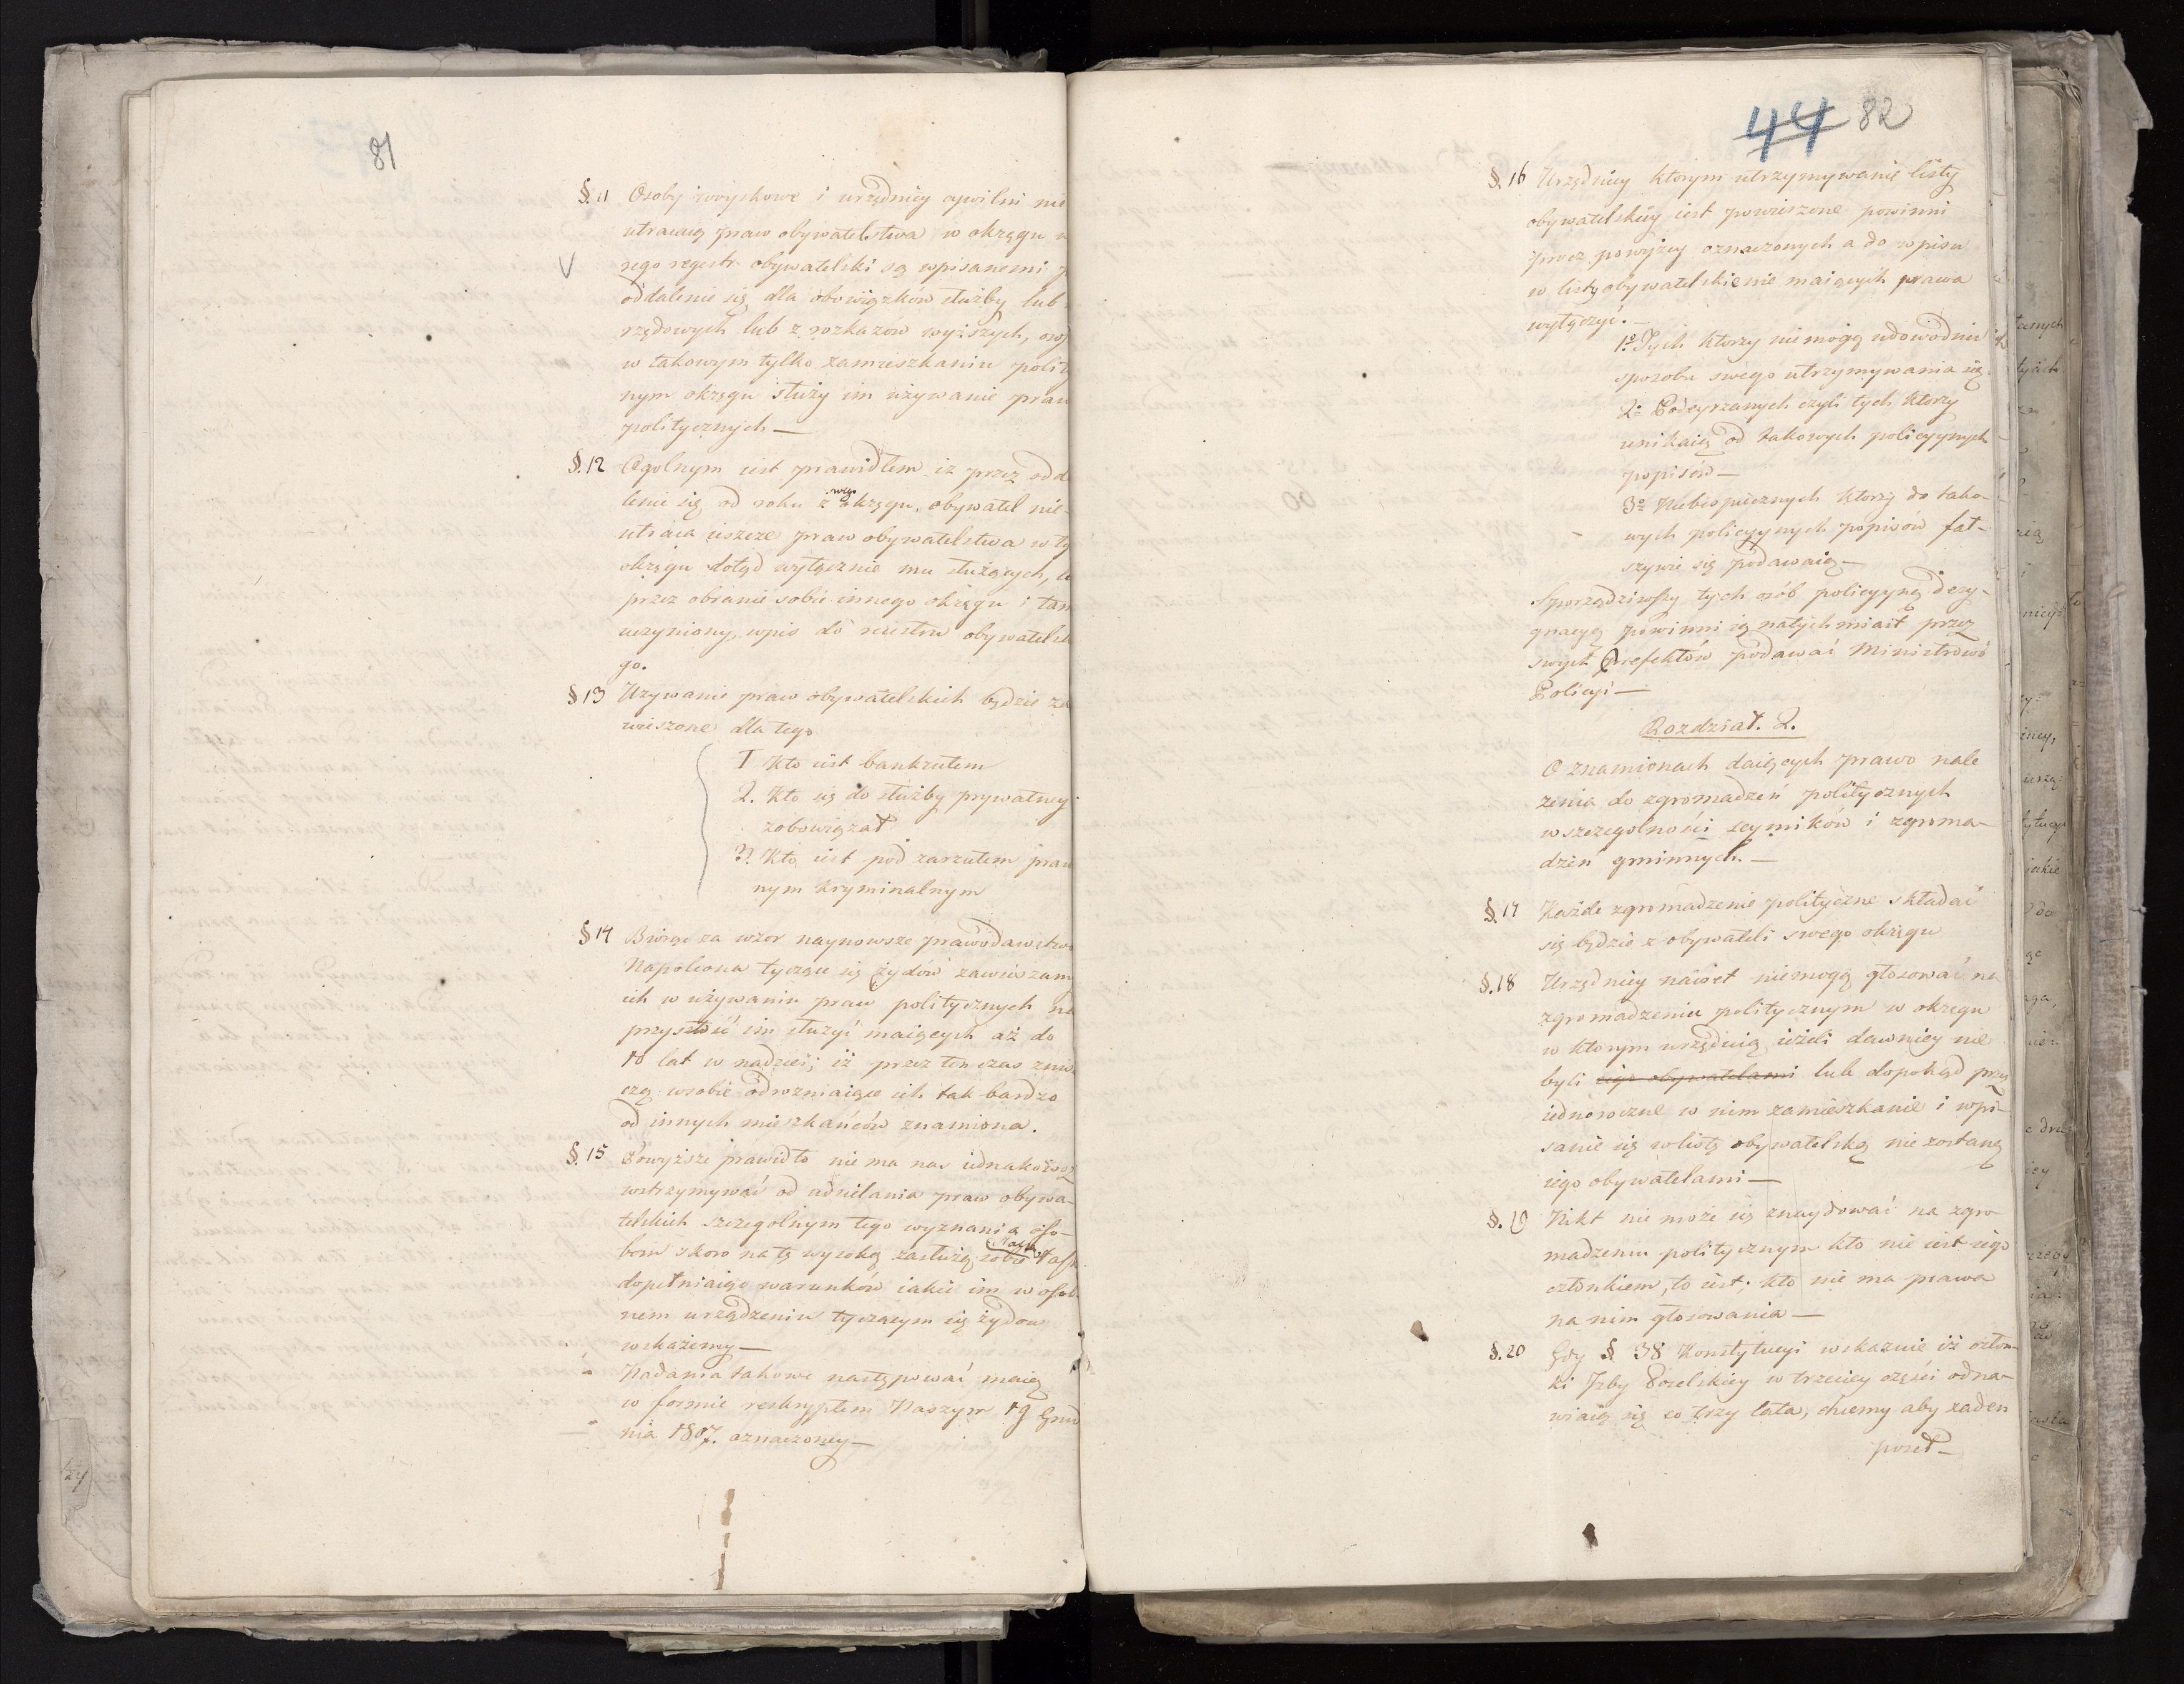 81
§. 11 Osoby woyskowe i urzędnicy cywilni nie
utracaią praw obywatelstwa w okręgu
rego regestr obywatelski są wpisanemi
oddalenie się dla obowiązków służby lub
rządowych lub z rozkazów wyższych,
w takowym tylko zamieszkaniu polity
nym okręgu służy im używanie praw
politycznych —
§. 12 Ogolnym iest prawidłem iż przez odda
lenie się od roku z swego okręgu, obywatel nie
utraca ieszcze praw obywatelstwa w ty
okręgu dotąd wyłącznie mu służących,
przez obranie sobie innego okręgu i tam
uczyniony wpis do reiestru obywatelsk
go.
§ 13 Używanie praw obywatelskich będzie za
wieszone dla tego
1 Kto iest bankrutem
2. Kto się do służby prywatney
zobowiązał
3. Kto iest pod zarzutem praw
nym kryminalnym
§ 14 Biorąc za wzor naynowsze prawodawstwo
Napoleona tyczące się żydów zawieszam
ich w używaniu praw politycznych na
przyszłość im służyć maiących aż do
10 lat w nadziei; iż przez ten czas zniw
czą w sobie odrozniaiące ich tak bardzo
od innych mieszkańców znamiona.
§. 15 Powyższe prawidło nie ma nas iednakowoż
wstrzymywać od udzielania praw obywa-
telskich szczegolnym tego wyznania oso-
bom skoro na tę wysoką zasłużą sobie
dopełniaiąc warunków iakie im w osob
nem urządzeniu tyczącym się żydow
wskażemy —
Nadania takowe następować maią
w formie reskryptem Naszym 19 Grud
nia 1807. oznaczoney —
44 82
§. 16 Urzędnicy ktorym utrzymywanie listy
obywatelskiey iest powierzone powinni
procz powyżey oznaczonych a do wpisu
w listy obywatelskie nie maiących prawa
wyłączyć. —
1º Tych ktorzy nie mogą udowodnić
sposobu swego utrzymywania się.
2º Podeyrzanych czyli tych ktorzy
unikaią od takowych policyynych
popisów —
3º Niebespiecznych ktorzy do tako-
wych policyynych popisów fał-
szywie się podawaią —
Sporządziwszy tych osób policyyną dezy-
gnacyą powinni ią natychmiast przez
swych Prefektów podawać Ministrowi
Policyi —
Rozdział. 2.
O znamionach daiących prawo nale
żenia do zgromadzeń politycznych
w szczegolności seymików i zgroma-
dzeń gminnych. —
§. 17 Każde zgromadzenie polityczne składać
się będzie z obywateli swego okręgu
§. 18 Urzędnicy nawet nie mogą głosować na
zgromadzeniu politycznym w okręgu
w ktorym urzęduią ieżeli dawniey nie
byli iego obywatelami lub dopokąd przez
iednoroczne w nim zamieszkanie i wpi-
sanie się w listę obywatelską nie zostaną
iego obywatelami —
§. 19 Nikt nie może się znaydować na zgro-
madzeniu politycznym kto nie iest iego
członkiem, to iest; kto nie ma prawa
na nim głosowania —
§. 20 Gdy § 38 Konstytucyi wskazuie iż człon-
ki Izby Poselskiey w trzeciey części odna-
wiaią się co trzy lata, chcemy aby żaden
poseł —